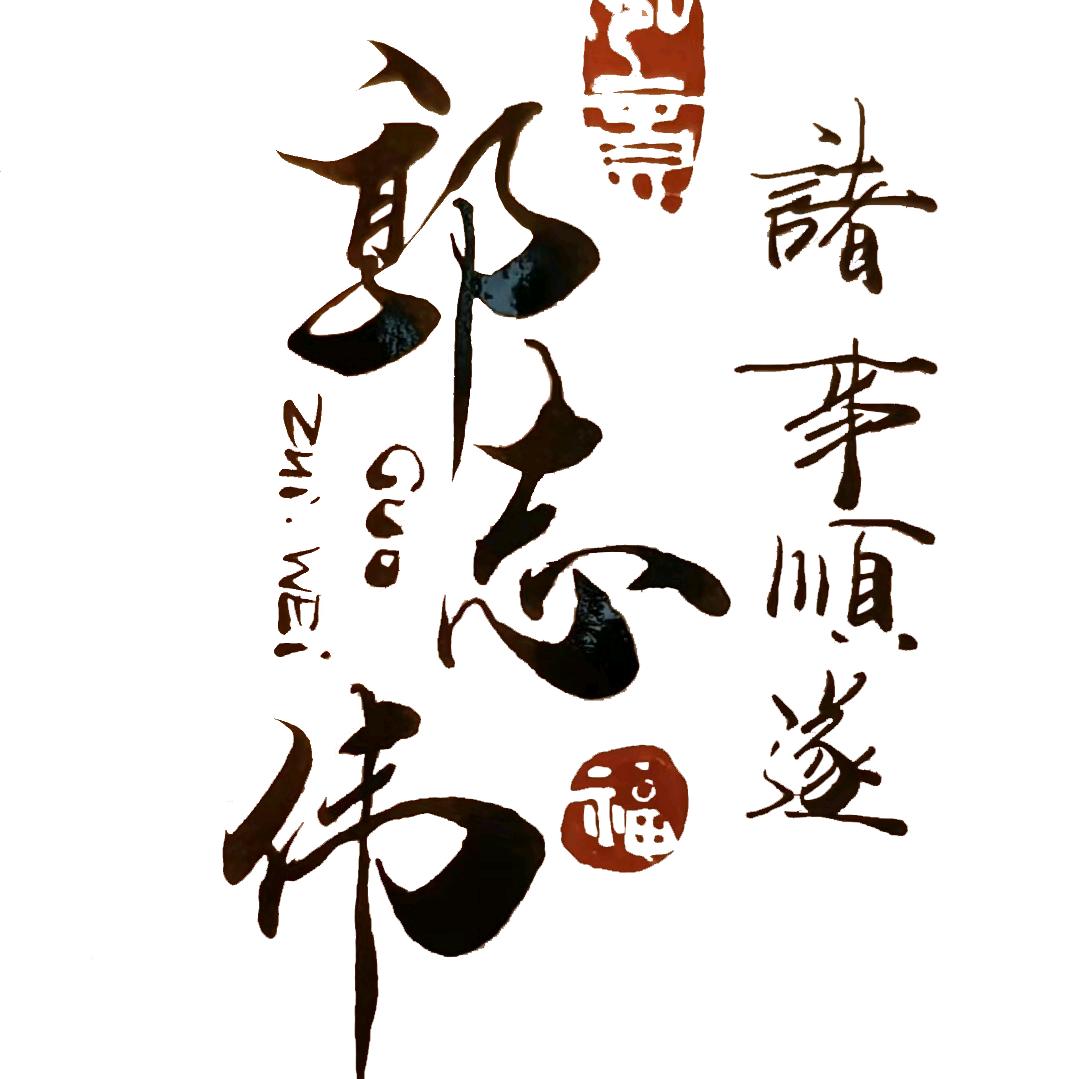 諸事順遂
郭志伟
GUO
ZHi·WEi
福